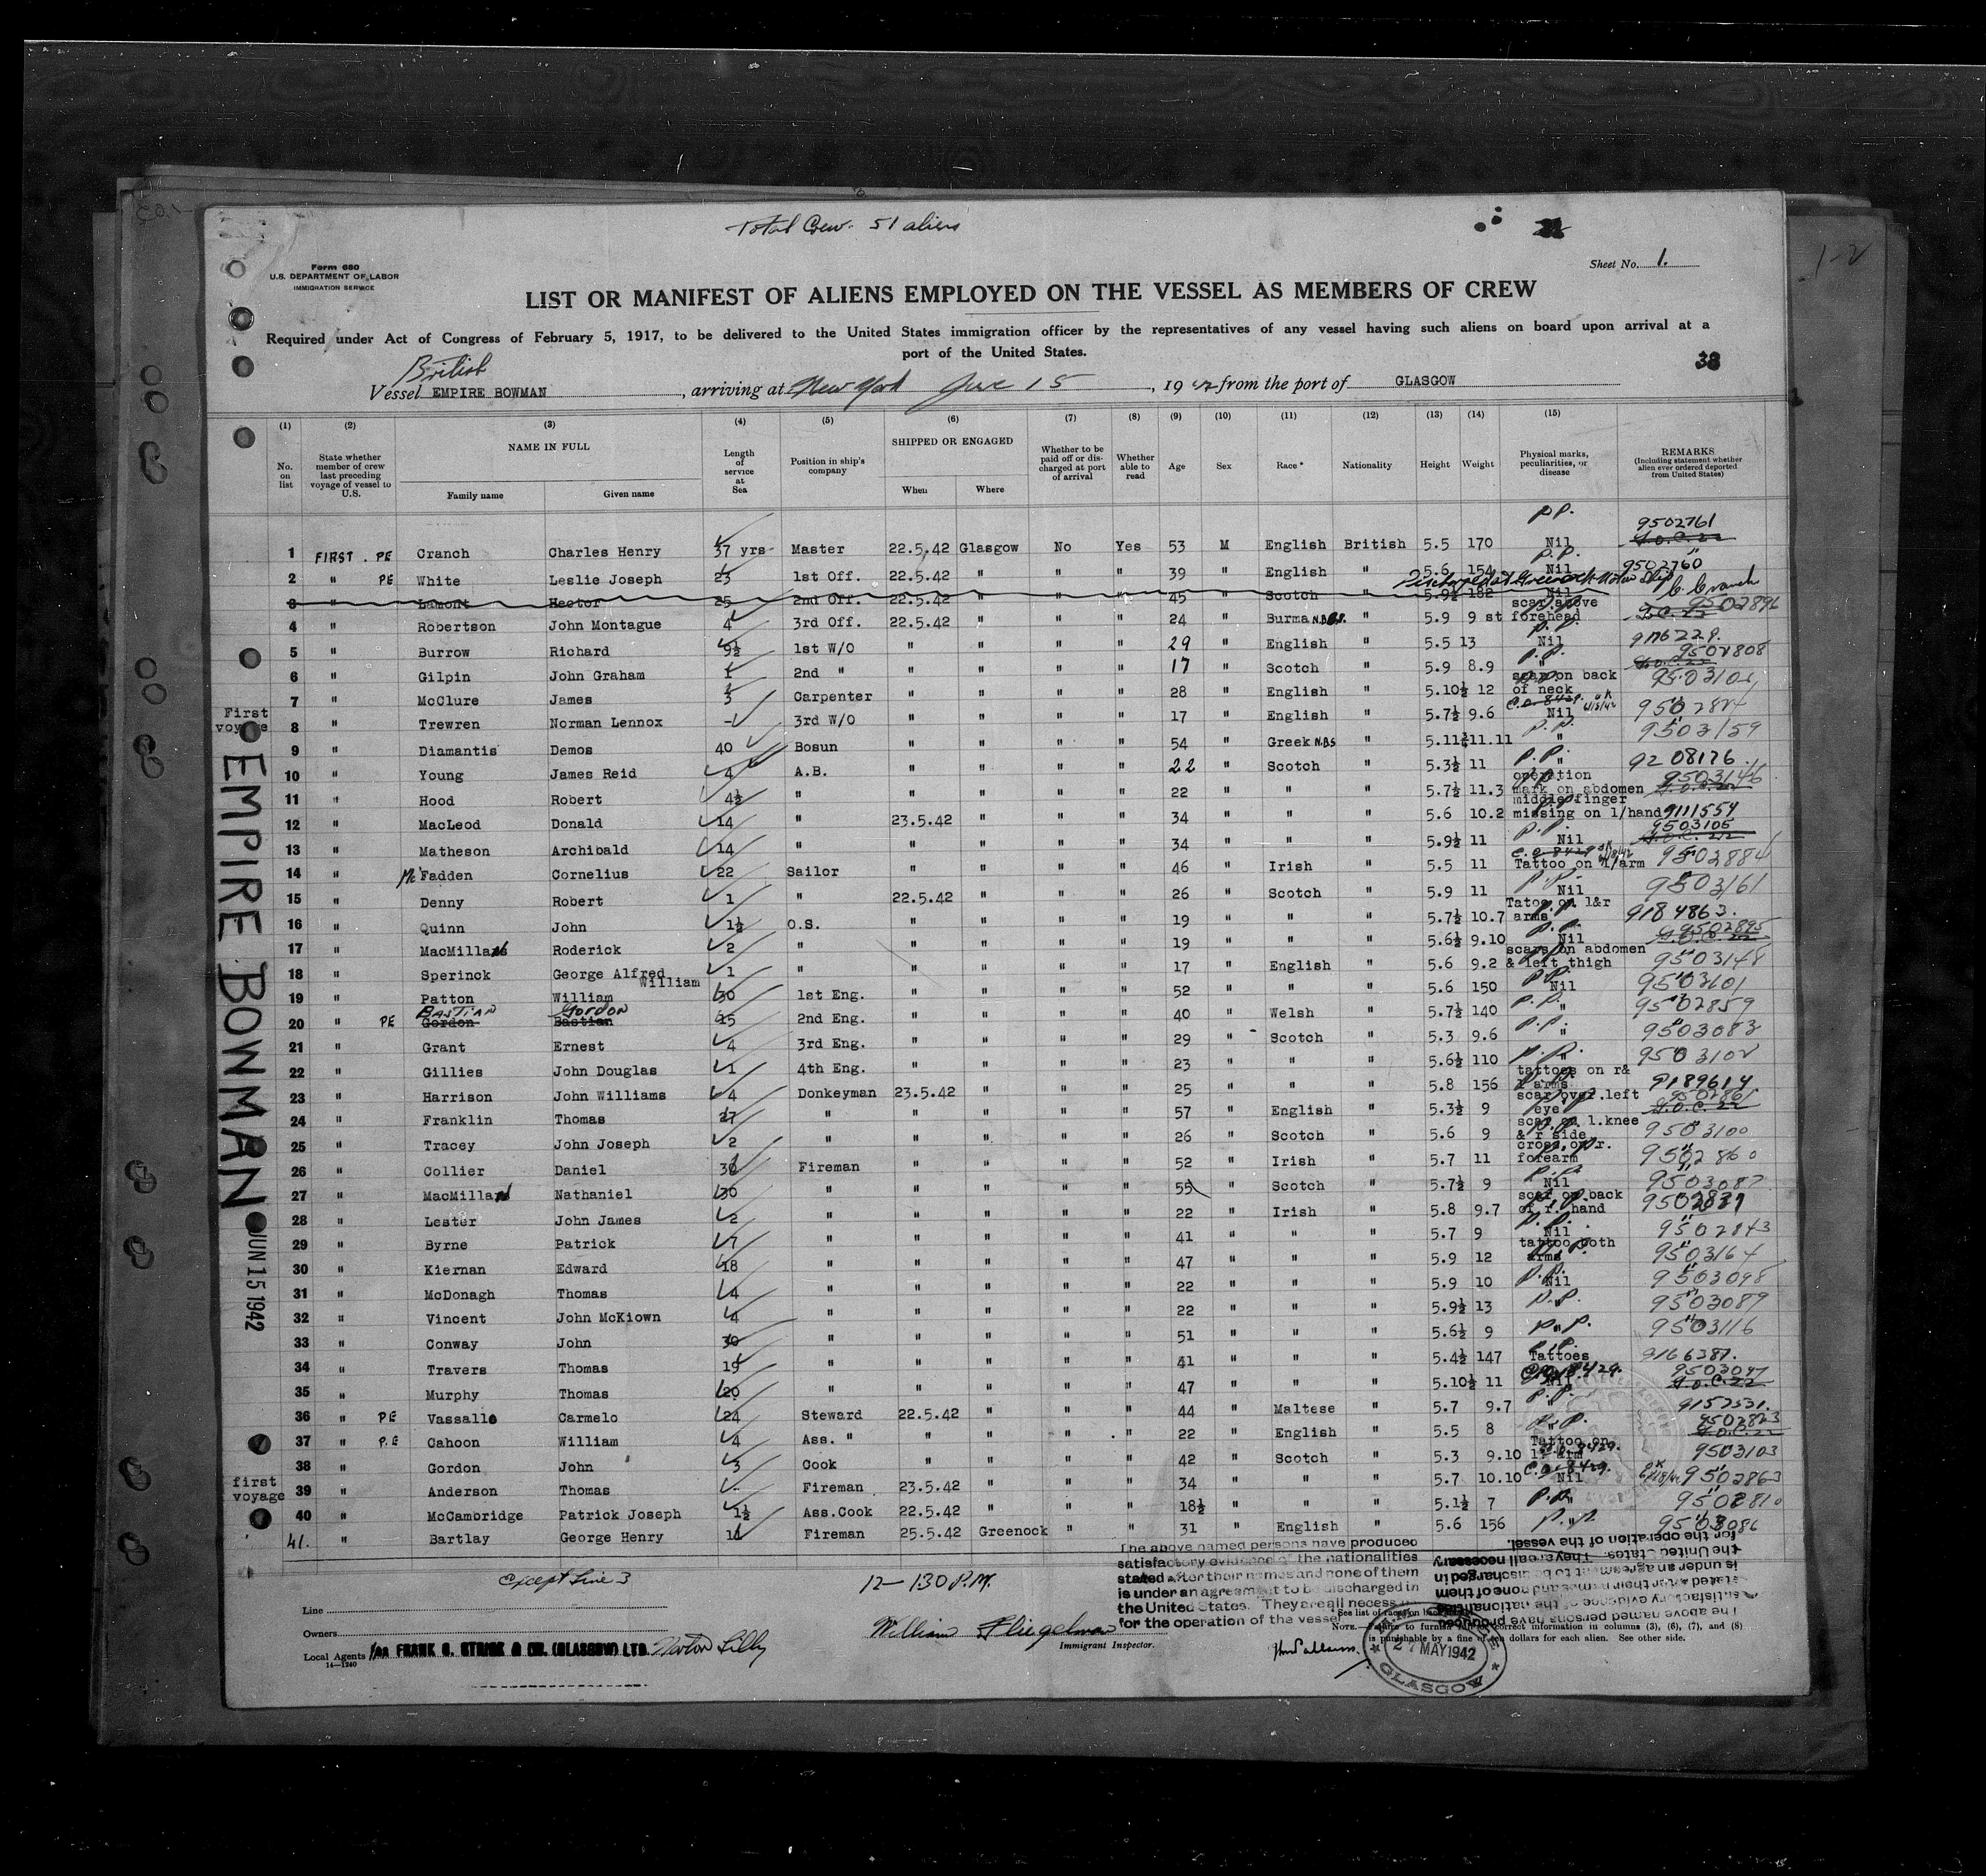 Total Crew. 51 aliens
Form 680
U.S. DEPARTMENT OF LABOR
IMMIGRATION SERVICE
Sheet No. 1.
LIST OR MANIFEST OF ALIENS EMPLOYED ON THE VESSEL AS MEMBERS OF CREW
Required under Act of Congress of February 5, 1917, to be delivered to the United States immigration officer by the representatives of any vessel having such aliens on board upon arrival at a
port of the United States.
38
British
Vessel EMPIRE BOWMAN, arriving at New York June 15, 1942 from the port of GLASGOW
(1) (2) (3) (4) (5) (6) (7) (8) (9) (10) (11) (12) (13) (14) (15)
No. on list State whether member of crew last preceding voyage of vessel to U.S. NAME IN FULL Family name Given name Length of service at Sea Position in ship's company SHIPPED OR ENGAGED When Where Whether to be paid off or discharged at port of arrival Whether able to read Age Sex Race * Nationality Height Weight Physical marks, peculiarities, or disease REMARKS (Including statement whether alien ever ordered deported from United States)
1 FIRST. PE Cranch Charles Henry 37 yrs Master 22.5.42 Glasgow No Yes 53 M English British 5.5 170 P.P. Nil 9502761
2 " PE White Leslie Joseph 23 1st Off. 22.5.42 " " " 39 " English " 5.6 154 P.P. Nil 9502760
3 " Lamont Hector 25 2nd Off. 22.5.42 " " " 45 " Scotch " 5.9½ 182 Nil Discharged at Greenock C. Cranch
4 " Robertson John Montague 4 3rd Off. 22.5.42 " " " 24 " Burma N.B. " 5.9 9 st scar above forehead 9502896
5 " Burrow Richard 9½ 1st W/O " " " " 29 " English " 5.5 13 P.P. Nil 9176229.
6 " Gilpin John Graham 1 2nd " " " " " 17 " Scotch " 5.9 8.9 P.P. " 9502808
7 " McClure James 3 Carpenter " " " " 28 " English " 5.10½ 12 scar on back of neck
First voyage 8 " Trewren Norman Lennox - 3rd W/O " " " " 17 " English " 5.7½ 9.6 Nil
9 " Diamantis Demos 40 Bosun " " " " 54 " Greek N.B.S " 5.11½ 11.11 P.P. " 9503159
10 " Young James Reid 4 A.B. " " " " 22 " Scotch " 5.3½ 11 P.P. " 9208176
11 " Hood Robert 4½ " " " " " 22 " " " 5.7½ 11.3 operation mark on abdomen 9503146
12 " MacLeod Donald 14 " 23.5.42 " " " 34 " " " 5.6 10.2 middle finger missing on l/hand 9111554
13 " Matheson Archibald 14 " " " " " 34 " " " 5.9½ 11 P.P. Nil 9503105
14 " McFadden Cornelius 22 Sailor " " " " 46 " Irish " 5.5 11 Tattoo on l/arm 9502884
15 " Denny Robert 1 " 22.5.42 " " " 26 " Scotch " 5.9 11 P.P. Nil 9503161
16 " Quinn John 1½ O.S. " " " " 19 " " " 5.7½ 10.7 Tatoo on l&r arms 9184863.
17 " MacMillan Roderick 2 " " " " " 19 " " " 5.6½ 9.10 P.P. Nil 9502895
18 " Sperinck George Alfred William 1 " " " " " 17 " English " 5.6 9.2 scars on abdomen & left thigh 9503148
19 " Patton William 30 1st Eng. " " " " 52 " " " 5.6 150 P.P. Nil 9503101
20 " PE BASTIAN Gordon Gordon Bastian 15 2nd Eng. " " " " 40 " Welsh " 5.7½ 140 P.P. " 9502859
21 " Grant Ernest 4 3rd Eng. " " " " 29 " Scotch " 5.3 9.6 P.P. " 9503083
22 " Gillies John Douglas 1 4th Eng. " " " " 23 " " " 5.6½ 110 P.P. " 9503102
23 " Harrison John Williams 4 Donkeyman 23.5.42 " " " 25 " " " 5.8 156 tattoos on r& l arms 9189614
24 " Franklin Thomas 27 " " " " " 57 " English " 5.3½ 9 scar over left eye 9502861
25 " Tracey John Joseph 2 " " " " " 26 " Scotch " 5.6 9 scar on l.knee & r side 9503100
26 " Collier Daniel 30 Fireman " " " " 52 " Irish " 5.7 11 cross on r. forearm 9502860
27 " MacMillan Nathaniel 30 " " " " " 55 " Scotch " 5.7½ 9 P.P. Nil 9503087
28 " Lester John James 2 " " " " " 22 " Irish " 5.8 9.7 scar on back of r. hand
29 " Byrne Patrick 7 " " " " " 41 " " " 5.7 9 P.P. Nil 9502843
30 " Kiernan Edward 18 " " " " " 47 " " " 5.9 12 tattoo both arms 9503164
31 " McDonagh Thomas 4 " " " " " 22 " " " 5.9 10 P.P. Nil 9503098
32 " Vincent John McKiown 4 " " " " " 22 " " " 5.9½ 13 P.P. " 9503089
33 " Conway John 30 " " " " " 51 " " " 5.6½ 9 P.P. " 9503116
34 " Travers Thomas 19 " " " " " 41 " " " 5.4½ 147 P.P. Tattoes 9166387.
35 " Murphy Thomas 20 " " " " " 47 " " " 5.10½ 11 Nil 9503097
36 " PE Vassallo Carmelo 24 Steward 22.5.42 " " " 44 " Maltese " 5.7 9.7 P.P. " 9152531.
37 " P.E Cahoon William 4 Ass. " " " " " 22 " English " 5.5 8 P.P. " 9502823
38 " Gordon John 3 Cook " " " " 42 " Scotch " 5.3 9.10 Tattoo on l. arm 9503103
first voyage 39 " Anderson Thomas - Fireman 23.5.42 " " " 34 " " " 5.7 10.10 Nil 9502863
40 " McCambridge Patrick Joseph 1½ Ass.Cook 22.5.42 " " " 18½ " " " 5.1½ 7 P.P. " 9502810
41. " Bartlay George Henry 11 Fireman 25.5.42 Greenock " " 31 " English " 5.6 156 P.P. " 9503086
EMPIRE BOWMAN
JUN 15 1942
Except Line 3
12-130 P.M.
The above named persons have produced
satisfactory evidence of the nationalities
stated after their names and none of them
is under an agreement to be discharged in
the United States. They are all necessary
for the operation of the vessel.
The above named persons have produced
satisfactory evidence of the nationalities
stated after their names and none of them
is under an agreement to be discharged in
the United States. They are all necessary
for the operation of the vessel.
Line
Owners
Local Agents FRANK C. STRICK & CO. (GLASGOW) LTD. Norton Lilly
14-1240
William Fliegelman
Immigrant Inspector.
* See list of races on back
NOTE.—Failure to furnish full or correct information in columns (3), (6), (7), and (8)
is punishable by a fine of ten dollars for each alien. See other side.
27 MAY 1942
GLASGOW
1-2